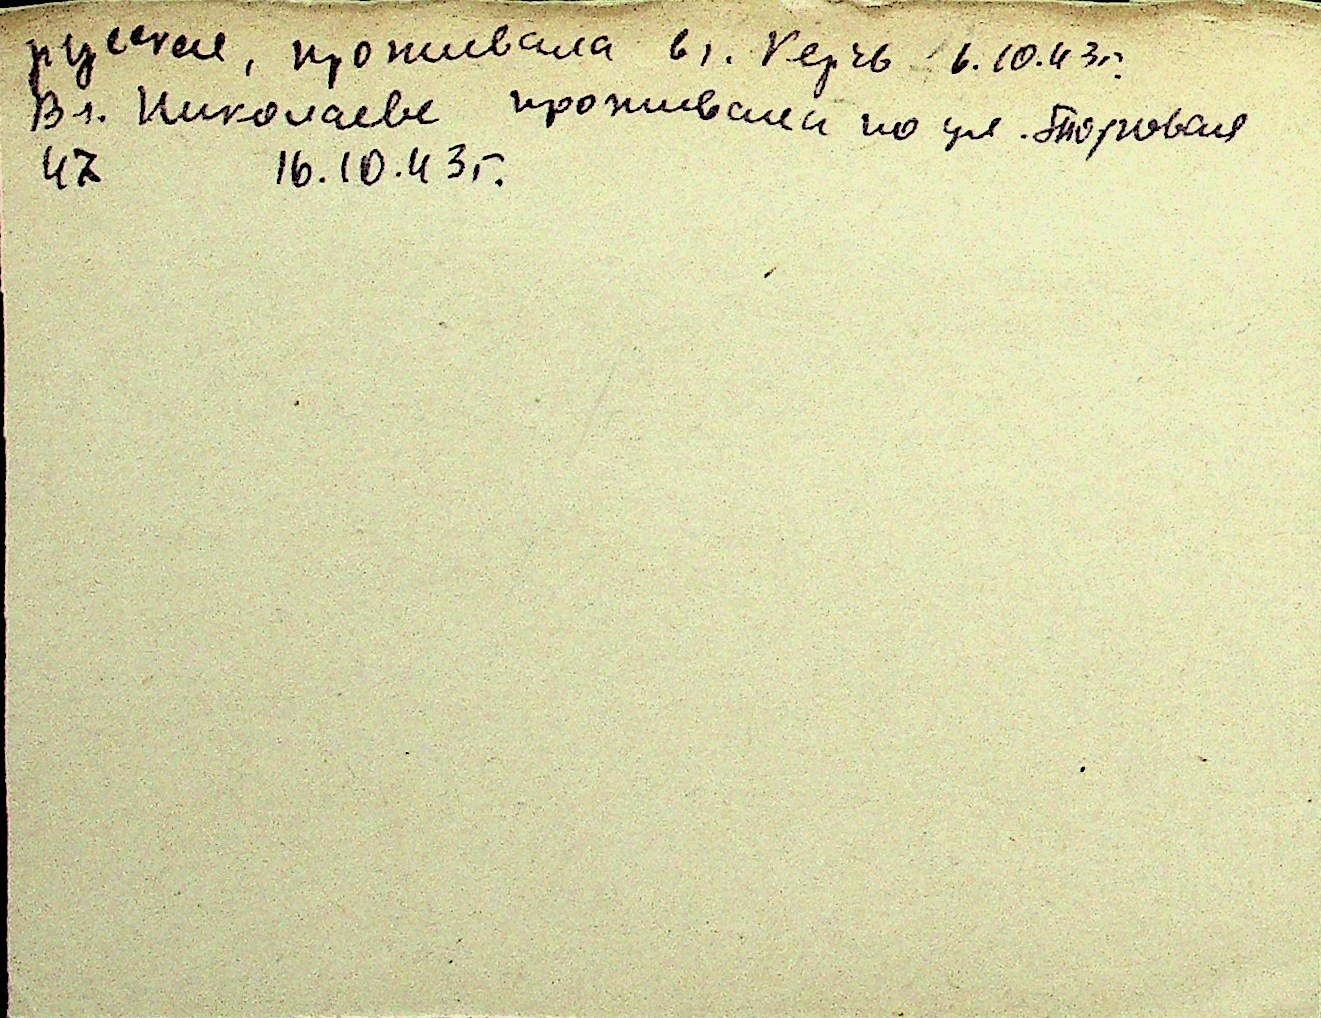 русская, проживала в г. Керчь 6.10.43г.
В г. Николаеве проживала по ул. Торговая
47 16.10.43г.